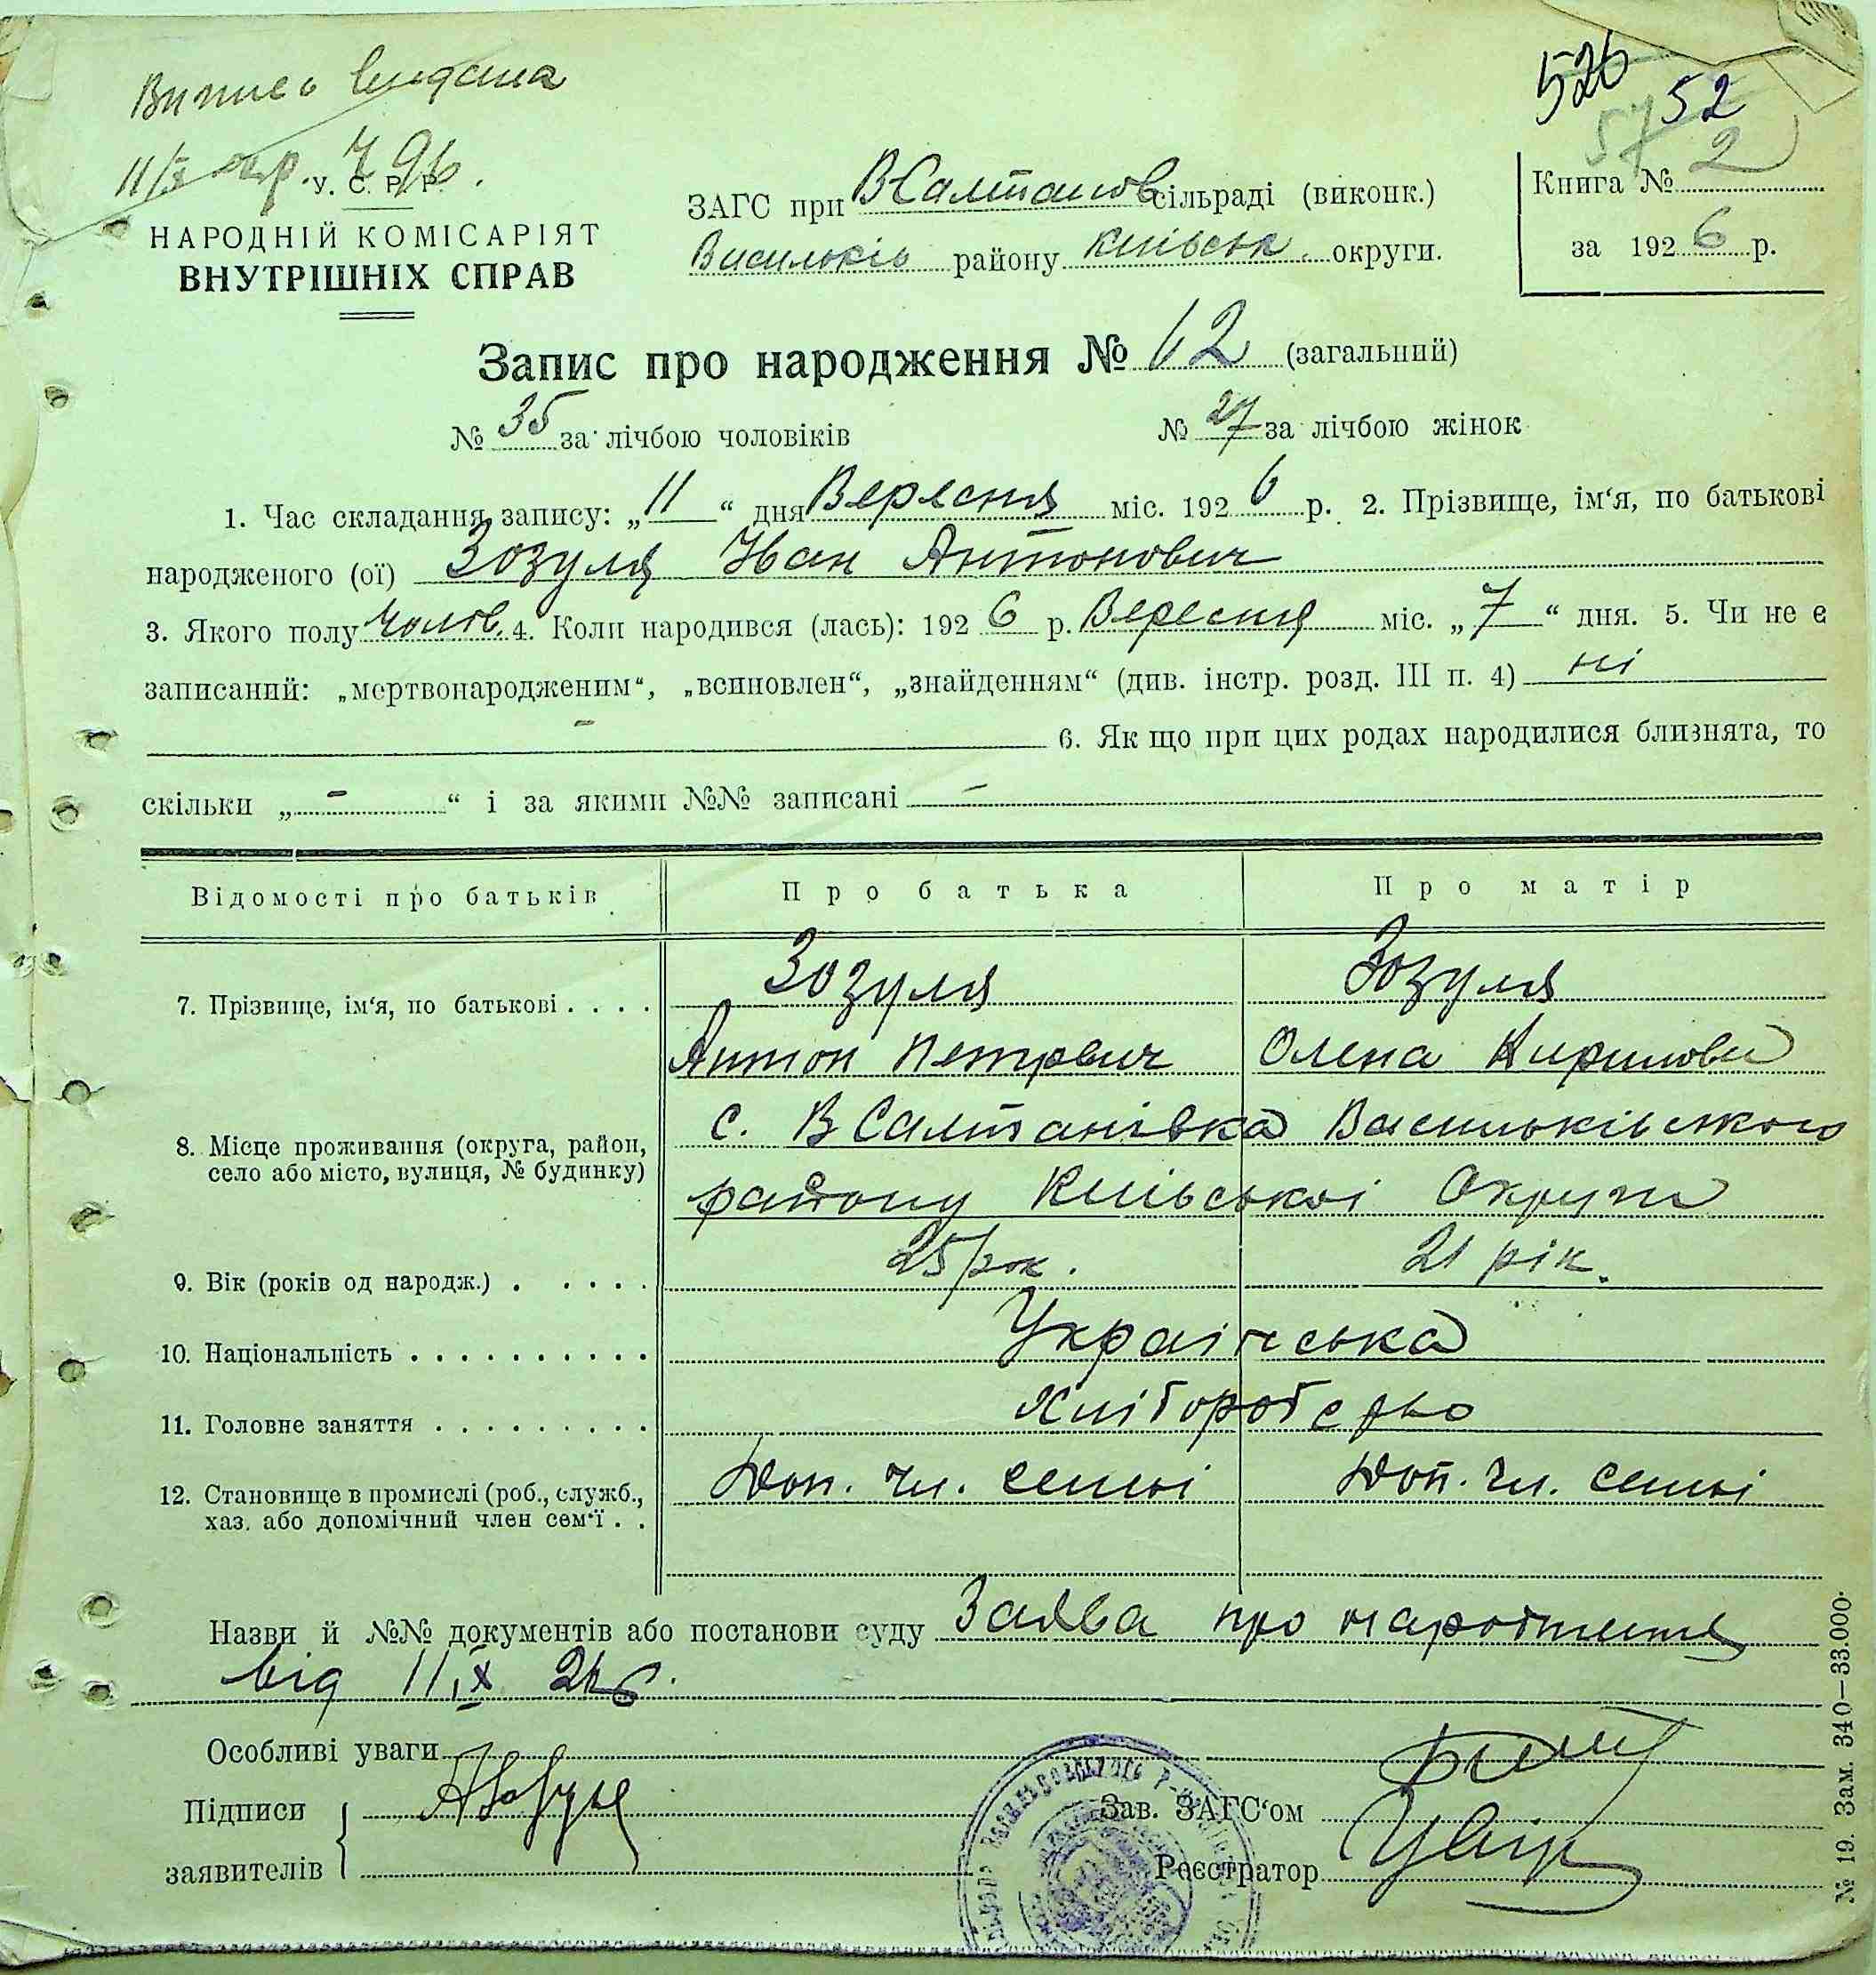 Випис видана
526
52
57
11/X
У. С. Р. Р.
НАРОДНІЙ КОМІСАРІЯТ
ВНУТРІШНІХ СПРАВ
ЗАГС при ВСалтанов сільраді (виконк.)
Васильків району Київськ. округи.
Книга № 2
за 1926 р.
Запис про народження № 62 (загальний)
№ 35 за лічбою чоловіків № 27 за лічбою жінок
1. Час складання запису: „11“ дня Вересня міс. 1926 р. 2. Прізвище, ім‘я, по батькові
народженого (ої) Зозуля Іван Антонович
3. Якого полу чолов. 4. Коли народився (лась): 1926 р. Вересня міс. „7“ дня. 5. Чи не є
записаний: „мертвонародженим“, „всиновлен“, „знайденням“ (див. інстр. розд. III п. 4) ні
- 6. Як що при цих родах народилися близнята, то
скільки „-“ і за якими №№ записані -
Відомості про батьків Про батька Про матір
Зозуля Зозуля
7. Прізвище, ім‘я, по батькові . . . .
Антон Петрович Олена Кирилова
с. ВСалтанівка Васильківського
8. Місце проживання (округа, район,
село або місто, вулиця, № будинку)
району Київської Округи
9. Вік (років од народж.) . . . . . 25 рок. 21 рік.
10. Національність . . . . . . . . . . Українська
11. Головне заняття . . . . . . . . . Хліборобство
12. Становище в промислі (роб., служб., Доп. чл. семьї Доп. чл. семьї
хаз. або допомічний член сем‘ї . .
Назви й №№ документів або постанови суду Заява про народження
від 11/IX 26р.
Особливі уваги
Підписи
заявителів
Зав. ЗАГС‘ом
Реєстратор
№ 19. Зам. 340—33.000.